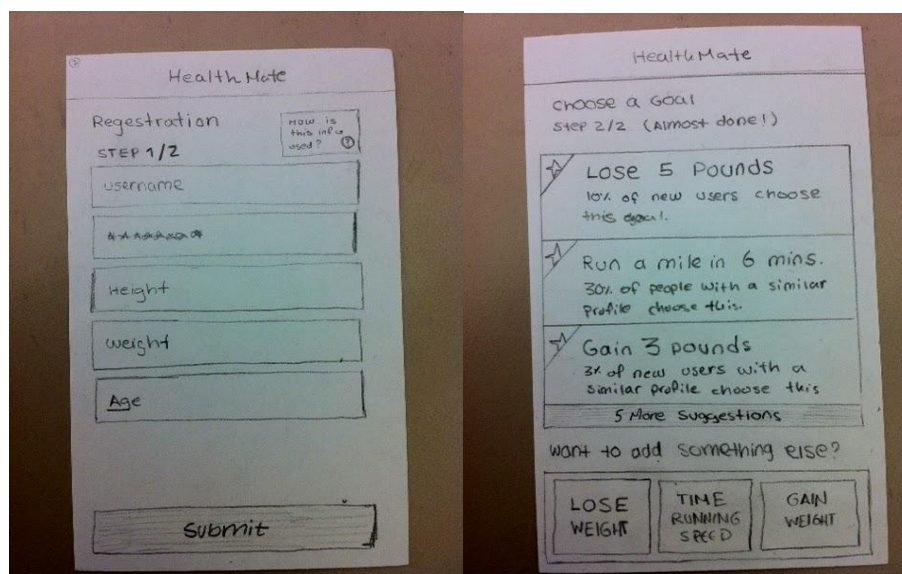 Health Mate
Regestration
STEP 1/2
How is
this info
used? ?
username
*******
Height
weight
Age
Submit
Health Mate
Choose a Goal
Step 2/2 (Almost done!)
Lose 5 Pounds
10% of new users choose
this goal.
Run a mile in 6 mins.
30% of people with a similar
profile choose this.
Gain 3 pounds
3% of new users with a
similar profile choose this
5 More Suggestions
Want to add something else?
LOSE
WEIGHT
TIME
RUNNING
SPEED
GAIN
WEIGHT